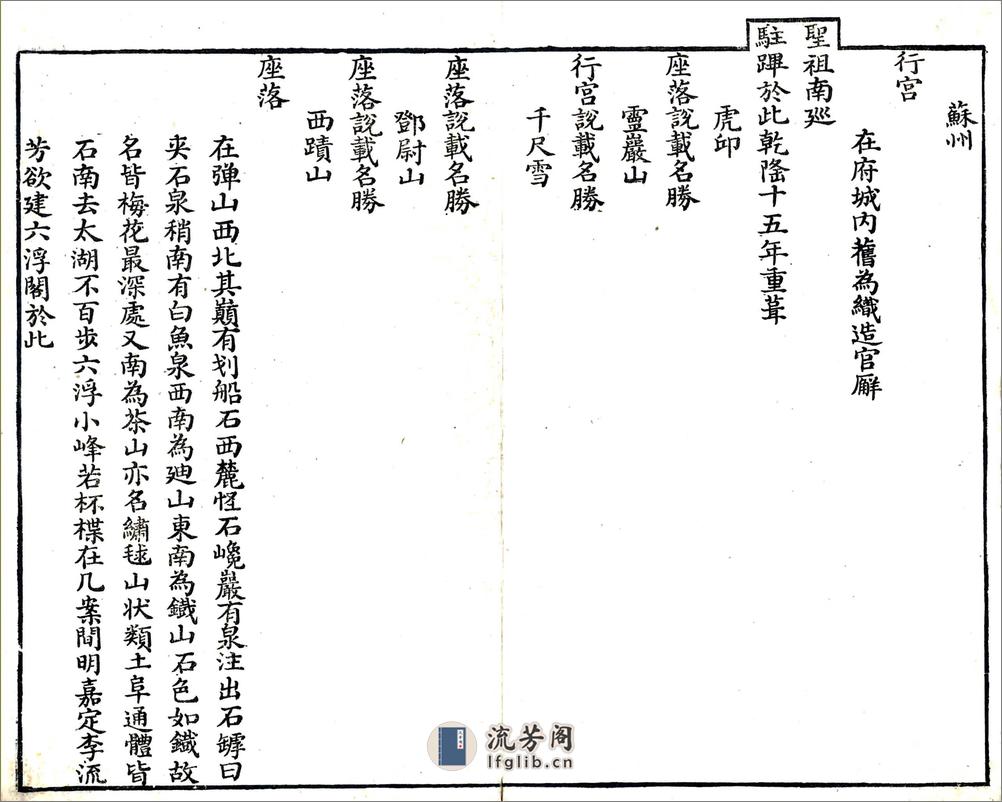 蘇州
行宮
在府城内舊為織造官廨
聖祖南廵
駐蹕於此乾隆十五年重葺
虎邱
座落說載名勝
靈巖山
行宮說載名勝
千尺雪
座落說載名勝
鄧尉山
座落說載名勝
西蹟山
座落
在弹山西北其巔有划船石西麓怪石巉巖有泉注出石罅曰
夹石泉稍南有白魚泉西南為廸山東南為鐵山石色如鐵故
名皆梅花最深處又南為茶山亦名繡毬山状類土阜通體皆
石南去太湖不百步六浮小峰若杯楪在几案間明嘉定李流
芳欲建六浮閣於此
流芳阁
lfglib.cn